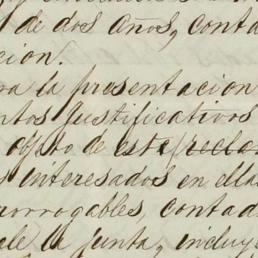 de dos años, conta
cion.
ra la presentacion
ntos justificativos
objeto de este reclam
s interesados en ella
rorrogables, contad
ale la junta, incluye